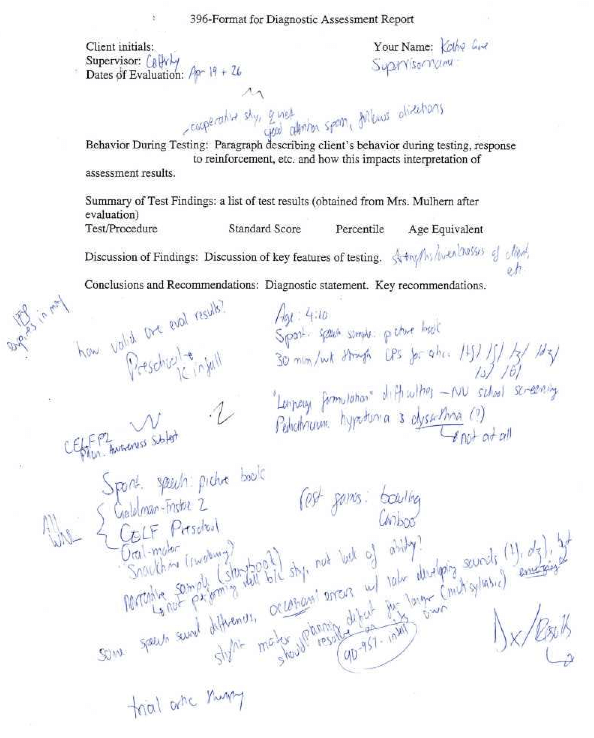 396-Format for Diagnostic Assessment Report
Client initials:
Your Name:
Supervisor:
Supervisor name
Dates of Evaluation: Apr 19 + 26
cooperative shy, quiet
good attention span, follows directions
Behavior During Testing: Paragraph describing client's behavior during testing, response
to reinforcement, etc. and how this impacts interpretation of
assessment results.
Summary of Test Findings: a list of test results (obtained from Mrs. Mulhern after
evaluation)
Test/Procedure Standard Score Percentile Age Equivalent
Discussion of Findings: Discussion of key features of testing. strengths/weaknesses of client,
etc
Conclusions and Recommendations: Diagnostic statement. Key recommendations.
IEP
expires in may
how valid are eval results?
Preschool →
K in fall
Age: 4:10
Spont. speech sample: picture book
30 min/wk through CPS for artic.
"Language formulation" difficulties – NU school screening
hypotonia dysarthria (?)
not at all
CELF P2
Awareness Subtest
Spont. speech: picture book
All
WNL
Goldman-Fristoe 2
CELF Preschool
Oral-motor
Snacktime (swallowing?)
narrative sample (storybook)
not performing well b/c shy, not lack of ability?
Test games: bowling
Cariboo
some speech sound differences, occasional errors w/ later developing sounds
slight motor planning deficit for longer (multisyllabic)
emerging
should resolve on its own
trial artic therapy
Dx/Results